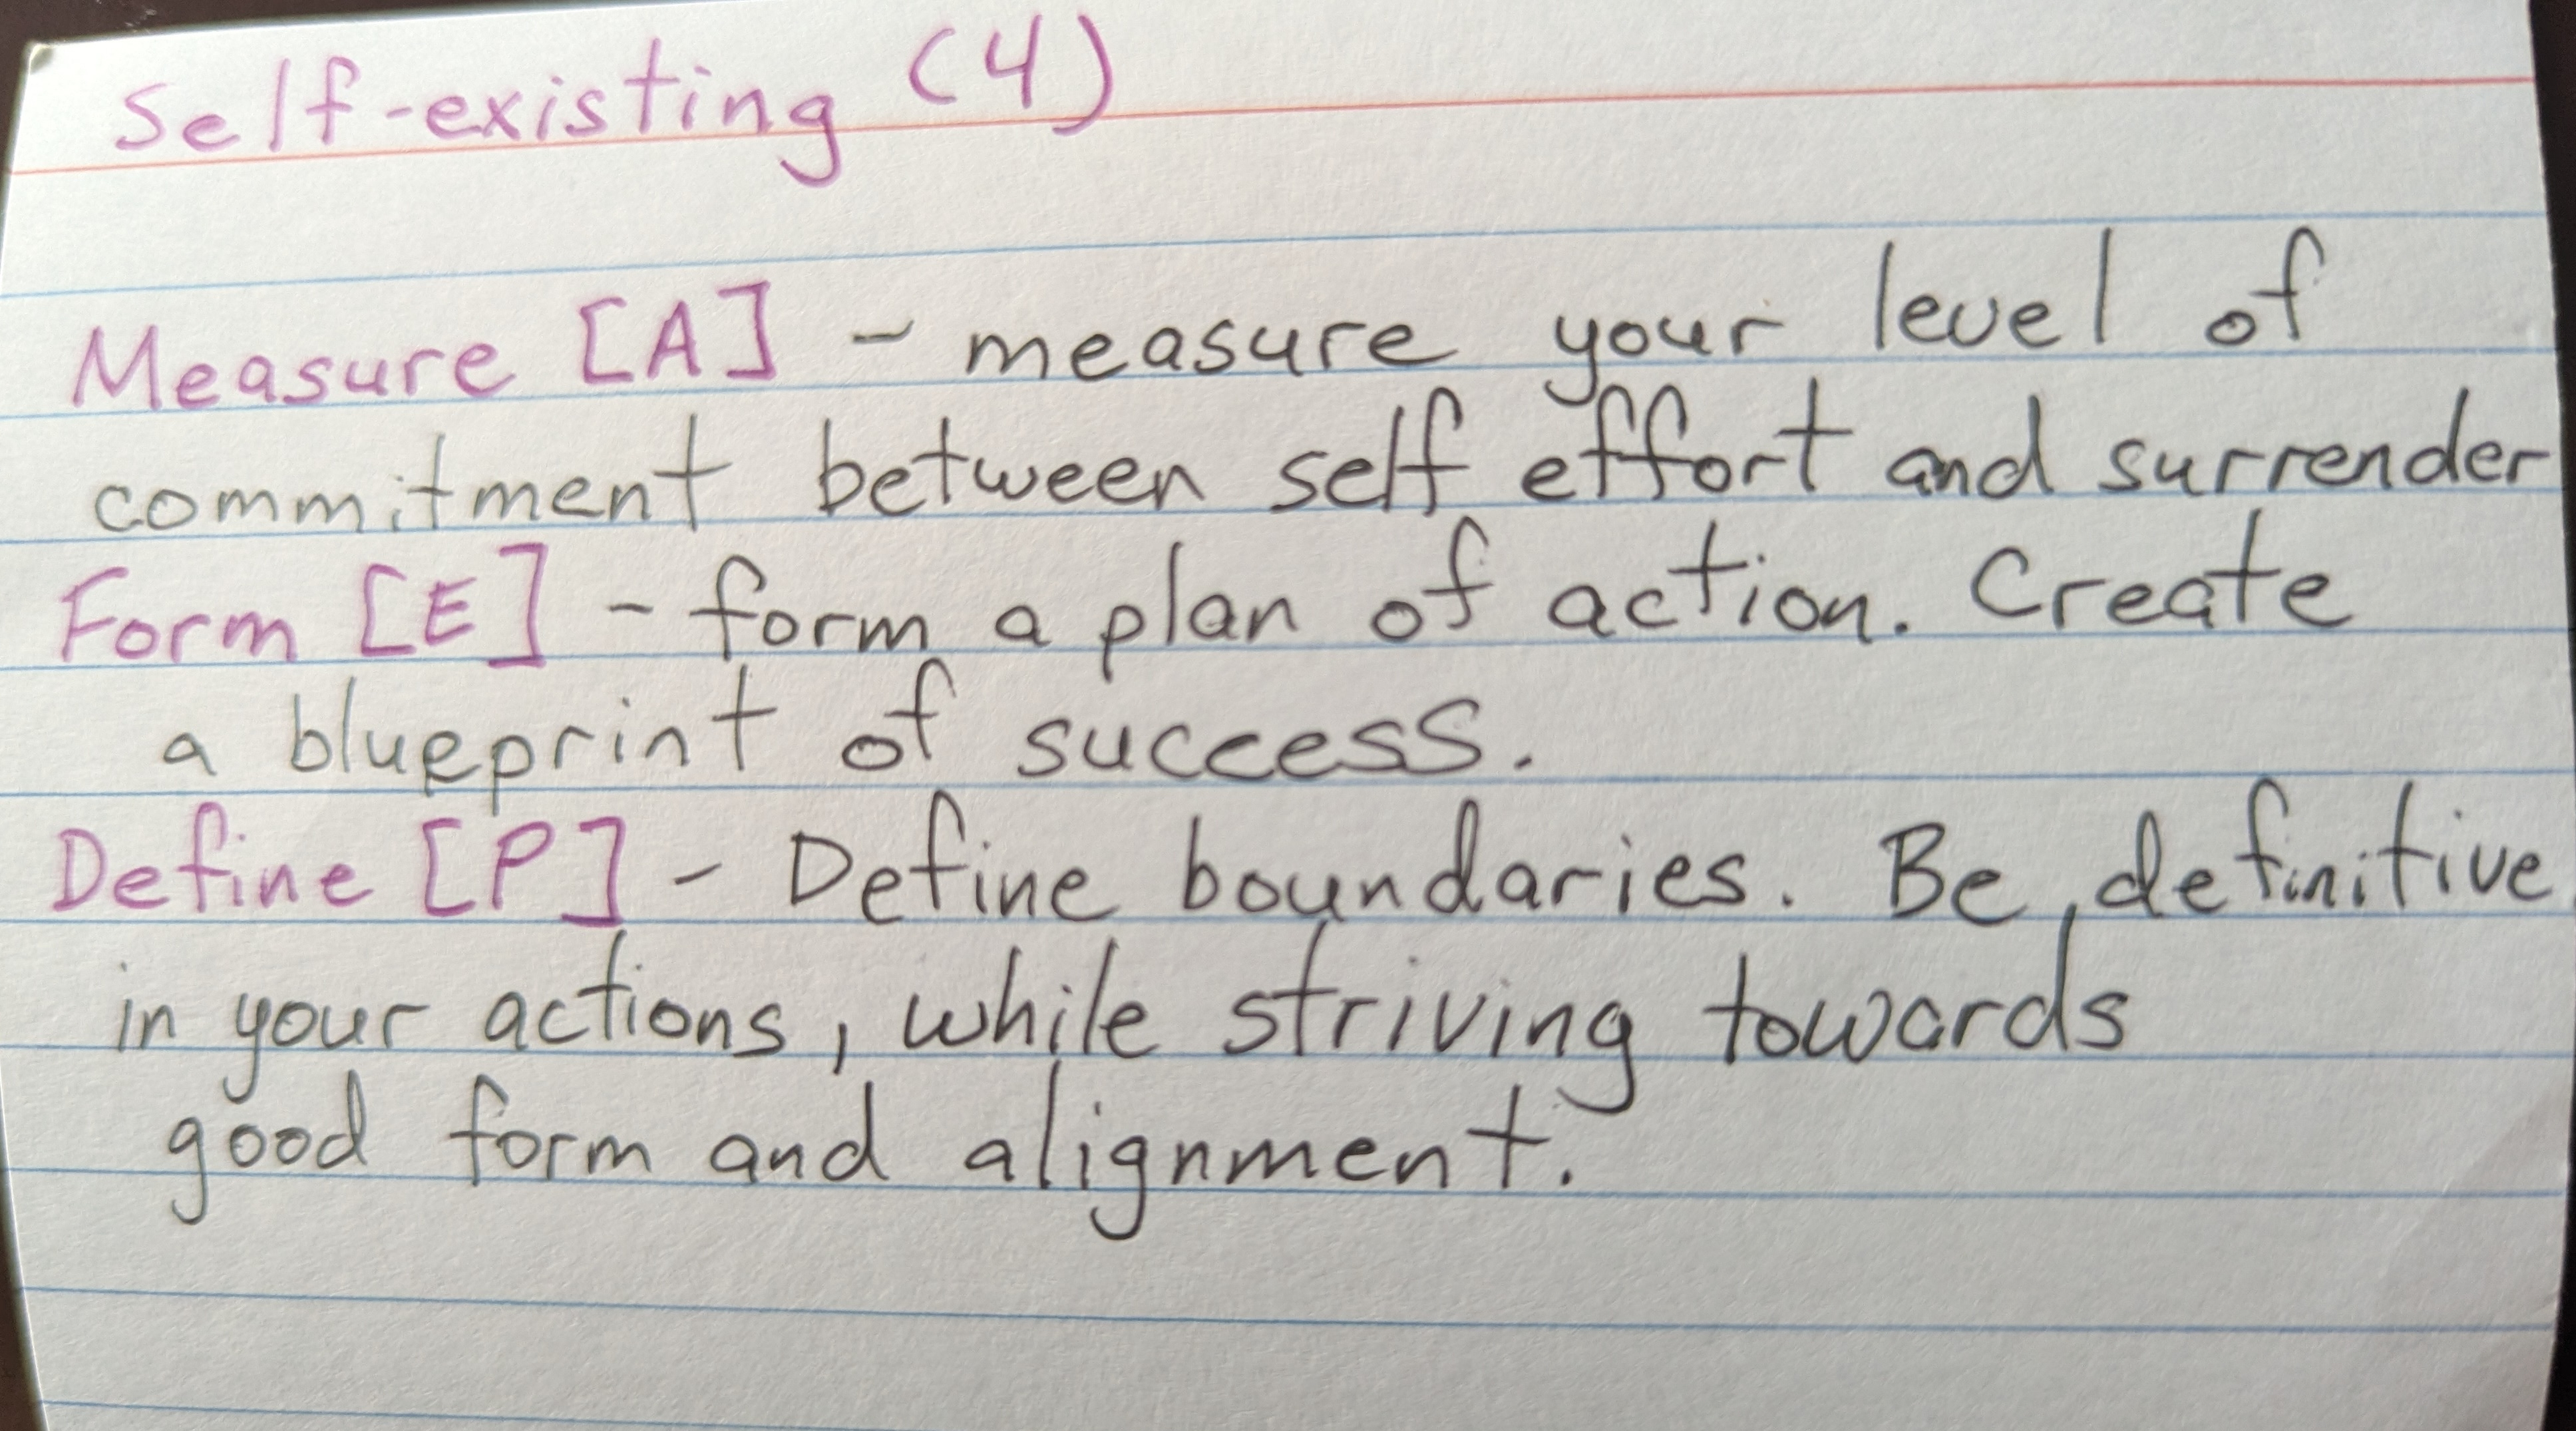 Self-existing (4)
Measure [A] - measure your level of
commitment between self effort and surrender
Form [E] - form a plan of action. Create
a blueprint of success.
Define [P] - Define boundaries. Be, definitive
in your actions, while striving towards
good form and alignment.